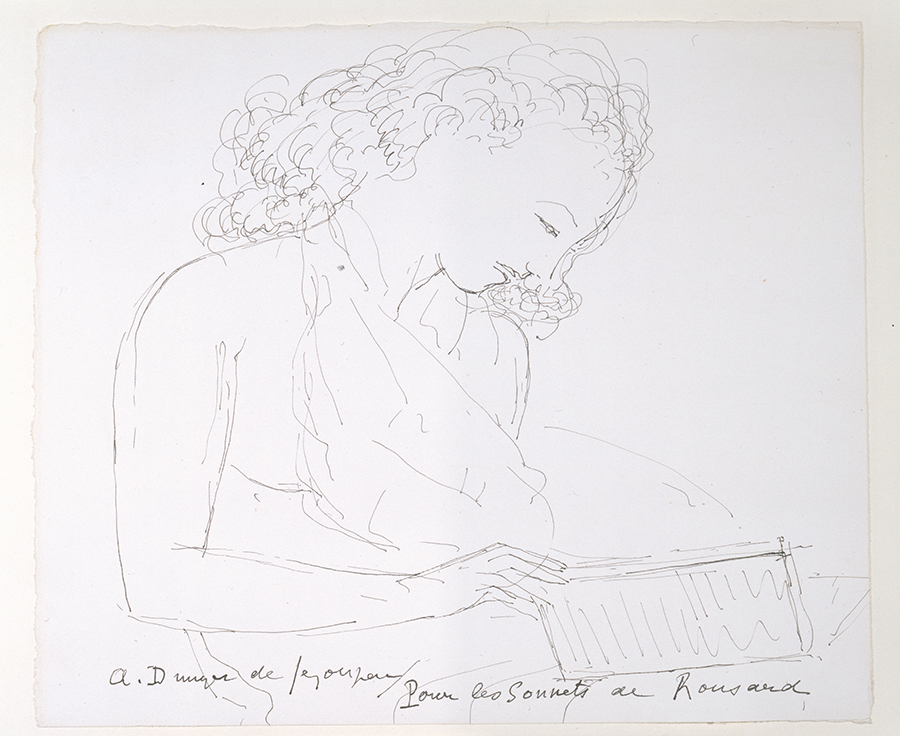 A. Dunoyer de Segonzac
Pour les Sonnets de Ronsard